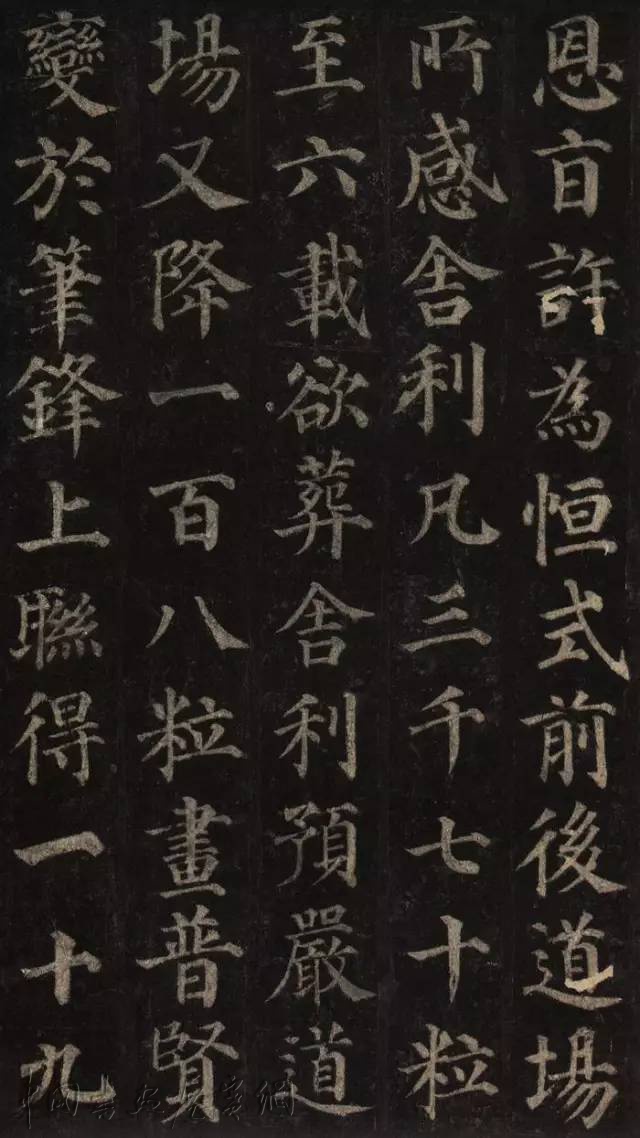 恩旨許為恒式前後道場
所感舍利凡三千七十粒
至六載欲葬舍利預嚴道
場又降一百八粒畫普賢
變於筆鋒上聯得一十九
中国书画展赛网